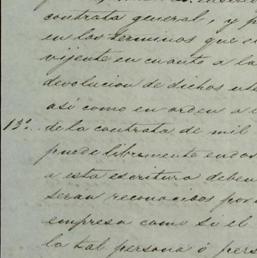 contrata general, y p
en los terminos que es
vijente en cuanto a la
devolucion de dichos ute
así como en orden a e
13ª de la contrata de mil
puede libremente endos
a esta escritura deben
seran reconocidos por
empresa como si el
la tal persona ó pers